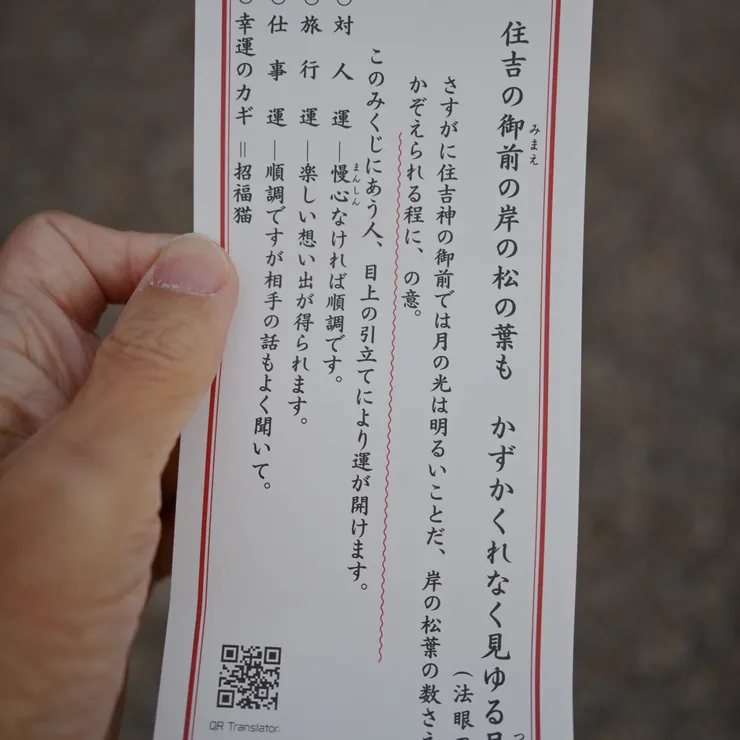 住吉の御前の岸の松の葉も　かずかくれなく見ゆる
みまえ
（法眼
さすがに住吉神の御前では月の光は明るいことだ、岸の松葉の数さえ
かぞえられる程に、の意。
このみくじにあう人、目上の引立てにより運が開けます。
○対人運―慢心なければ順調です。
まんしん
○旅行運―楽しい想い出が得られます。
○仕事運―順調ですが相手の話もよく聞いて。
○幸運のカギ＝招福猫
QR Translator